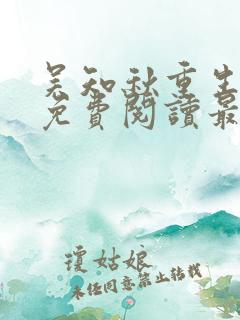 吴知秋重生
免費閱讀最
瓊姑娘
未经同意禁止转载